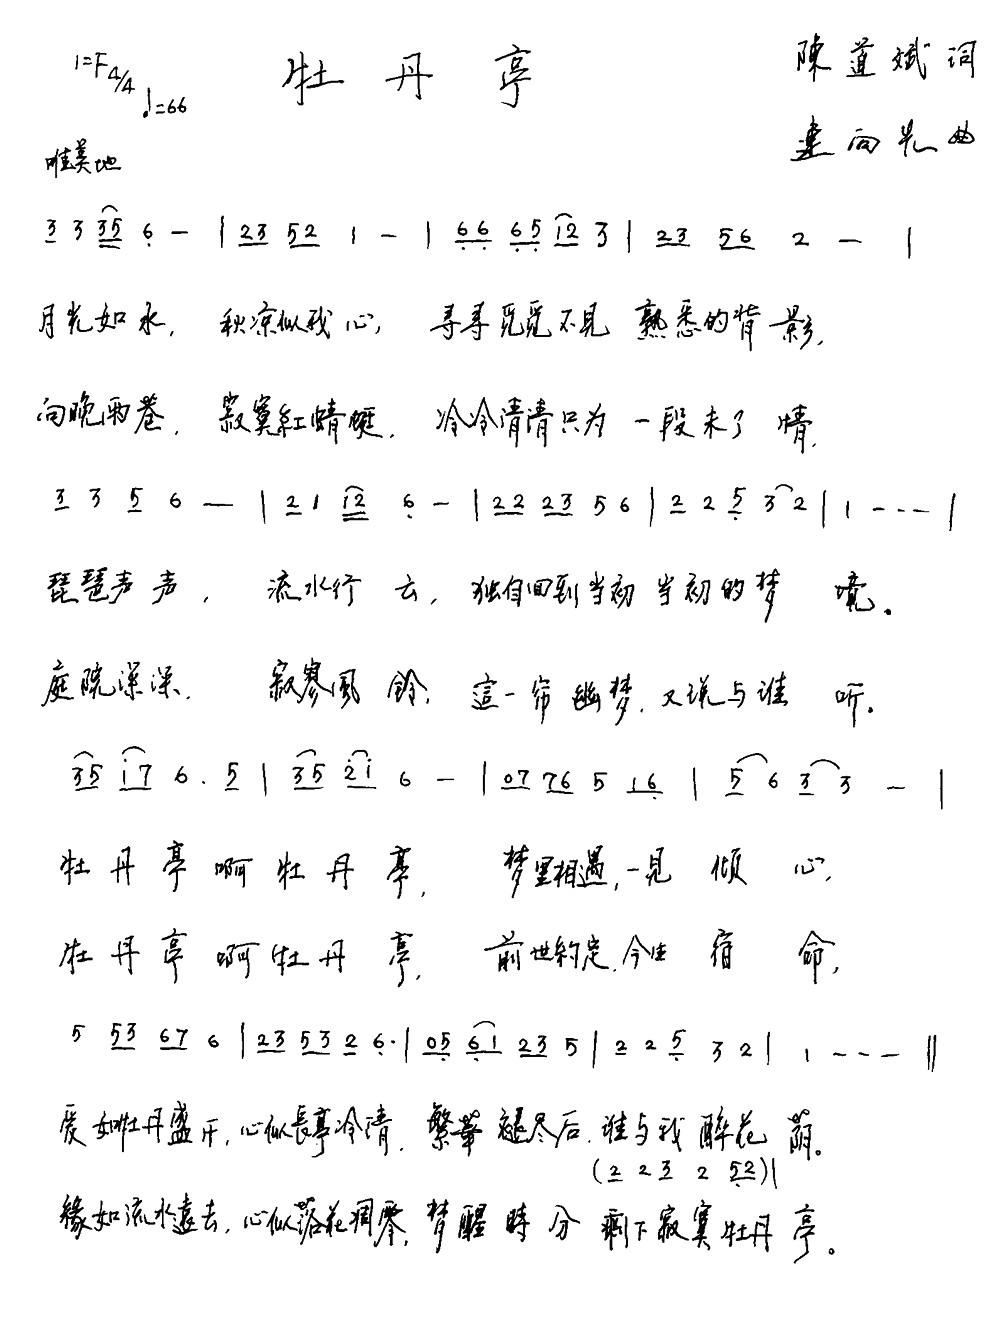 1=F 4/4 ♩=66
牡丹亭
陳道斌词
连向先曲
唯美地
3 3 35 6 — | 23 52 1 — | 66 65 12 3 | 23 56 2 — |
月光如水, 秋凉似我心, 寻寻觅觅不见 熟悉的背影,
向晚雨巷, 寂寞紅蜻蜓, 冷冷清清只为 一段未了情,
3 3 5 6 — | 2 1 12 6 — | 22 23 5 6 | 2 2 5 3 2 | 1 - - - |
琵琶声声, 流水行云, 独自回到当初 当初的梦境。
庭院深深, 寂寥風鈴, 這一帘幽梦, 又说与谁听。
35 i7 6 . 5 | 35 2i 6 — | 07 76 5 16 | 5 6 3 3 — |
牡丹亭啊牡丹亭, 梦里相遇,一見倾心,
牡丹亭啊牡丹亭, 前世約定,今生宿命,
5 53 67 6 | 23 53 2 6. | 05 61 23 5 | 2 2 5 3 2 | 1 - - - ‖
爱如牡丹盛开,心似長亭冷清, 繁華褪尽后,谁与我醉花荫。
(2 2 3 2 52)|
緣如流水遠去,心似落花凋零,梦醒時分 剩下寂寞牡丹亭。